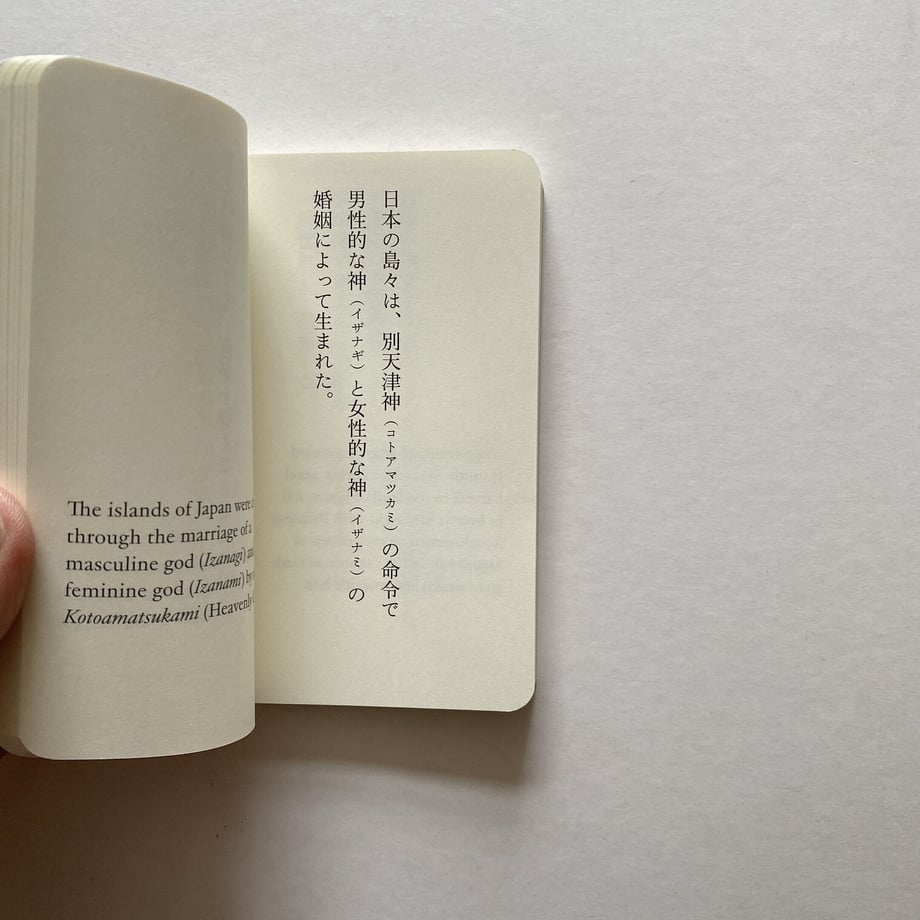 The islands of Japan were
through the marriage of a
masculine god (Izanagi)
feminine god (Izanami)
Kotoamatsukami (Heavenly
日本の島々は、別天津神（コトアマツカミ）の命令で
男性的な神（イザナギ）と女性的な神（イザナミ）の
婚姻によって生まれた。